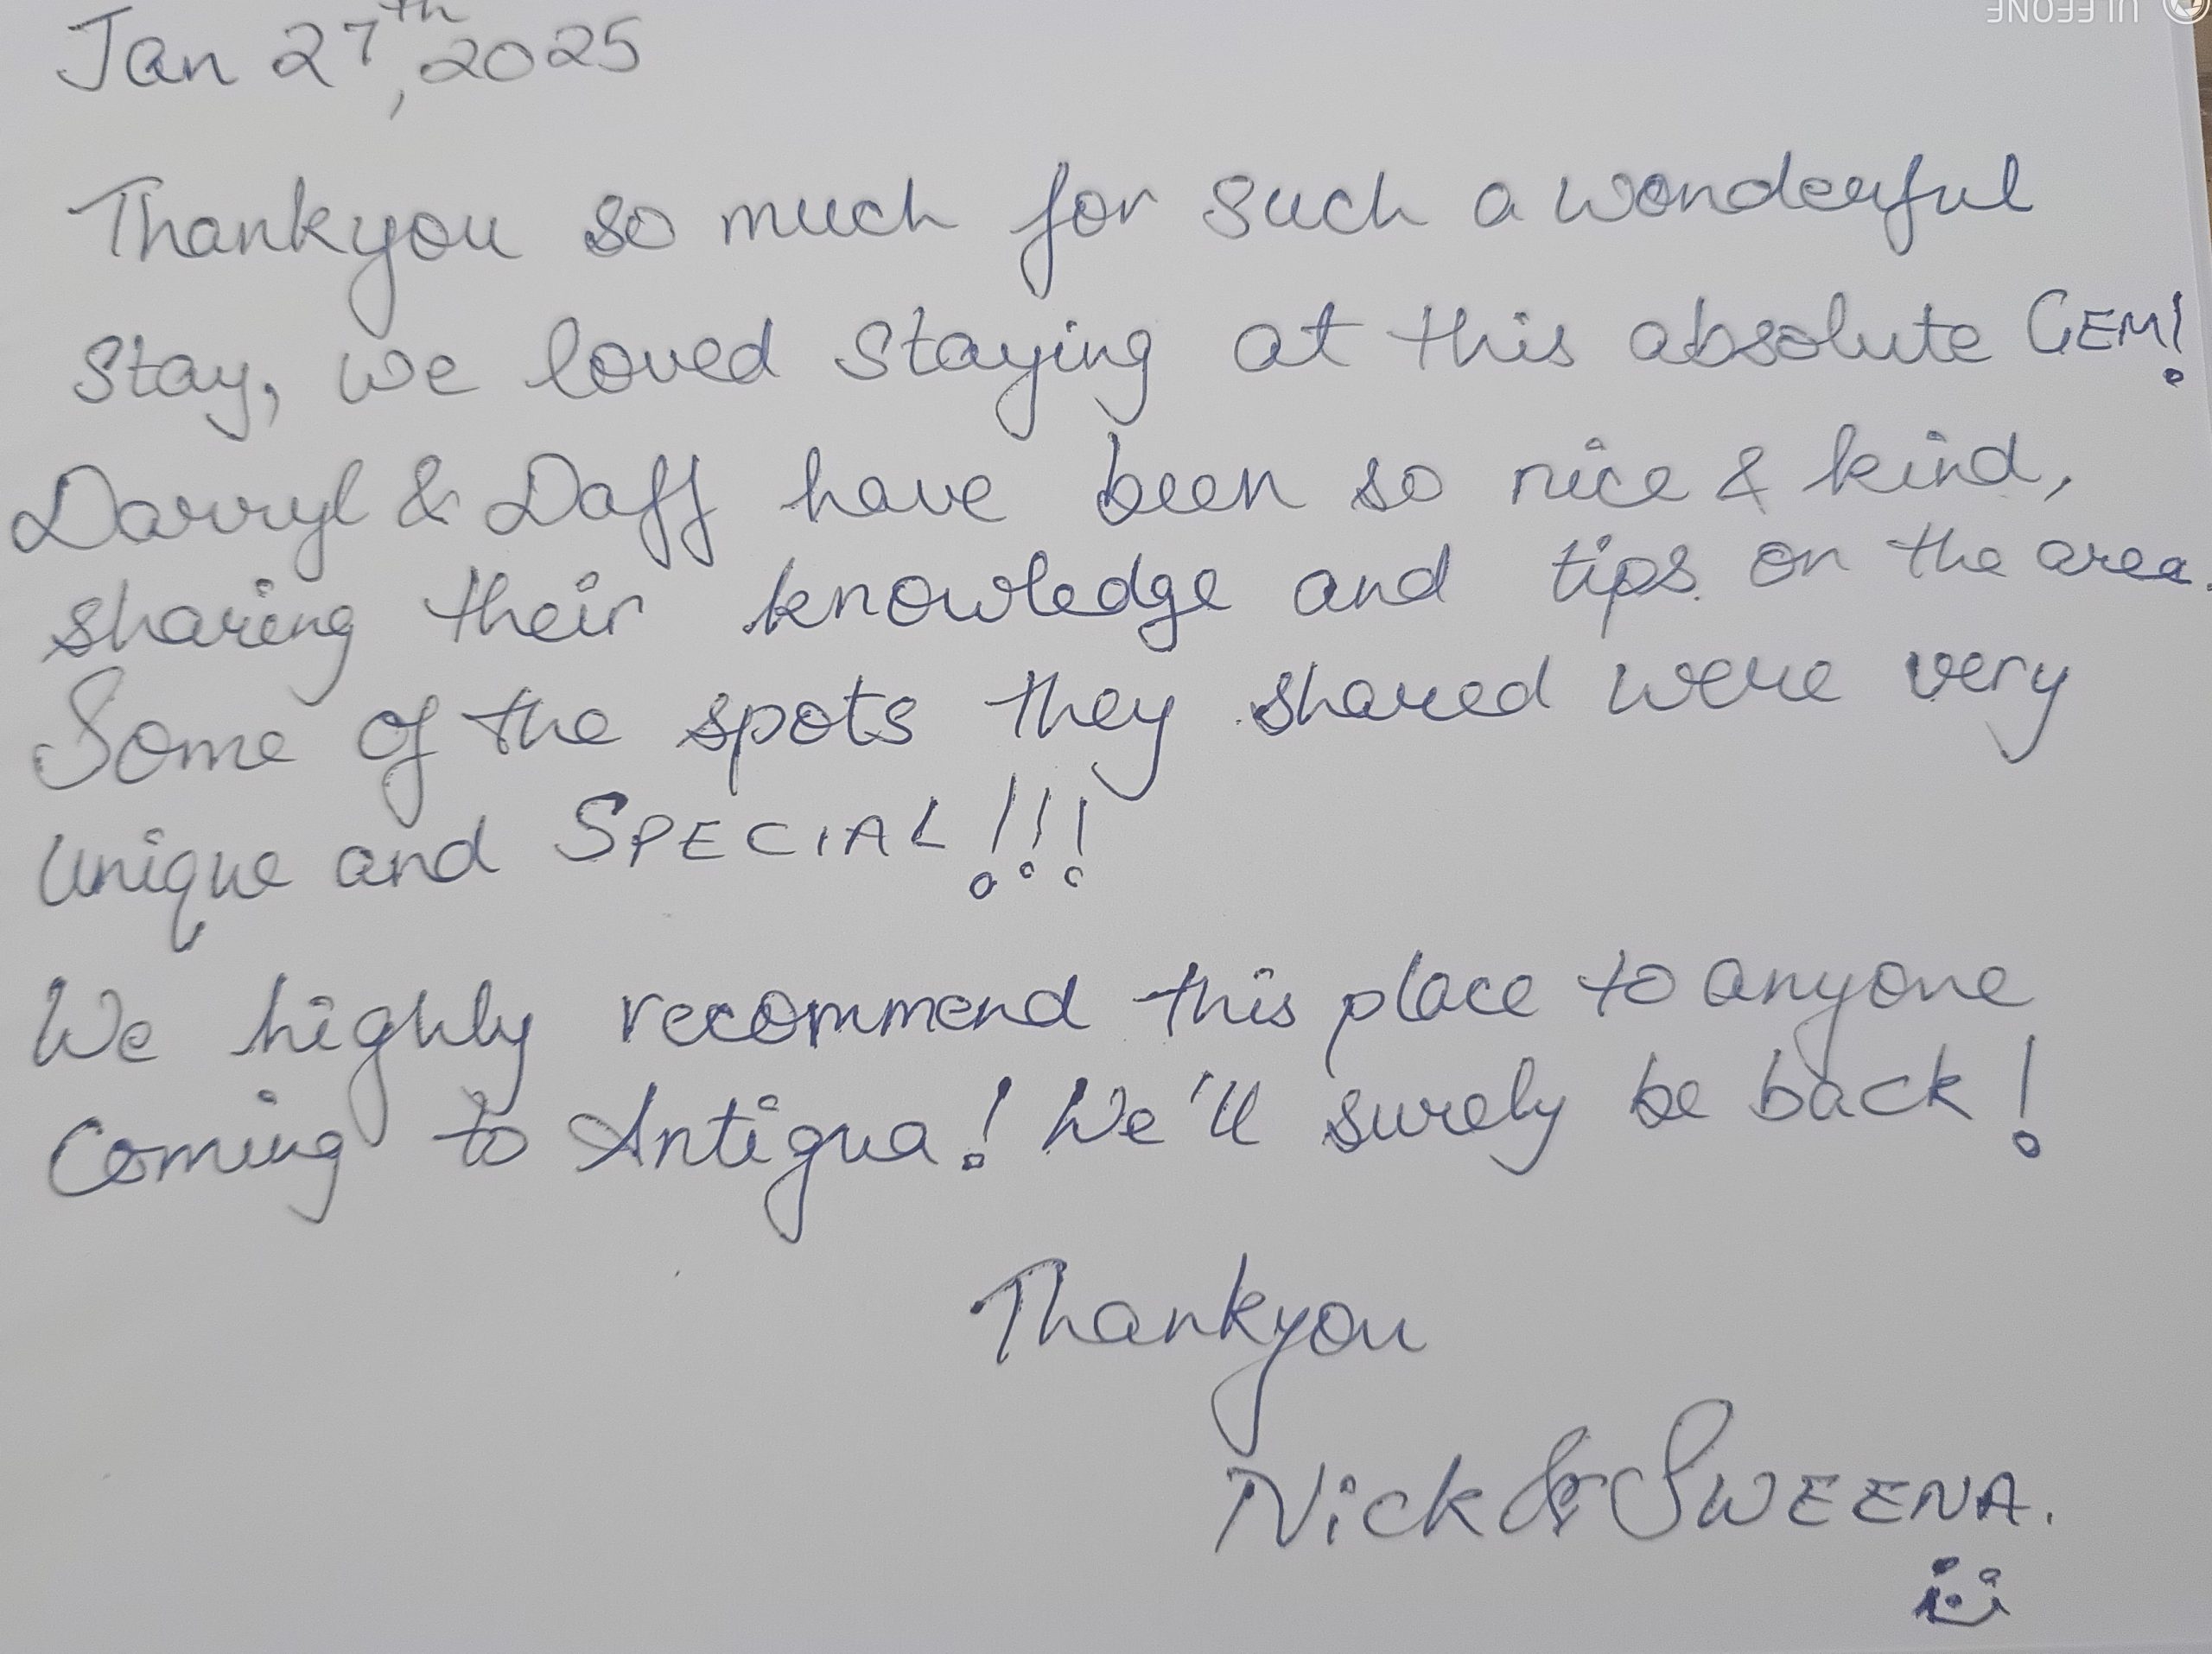 Jan 27th, 2025
Thankyou so much for such a wonderful
stay, we loved staying at this absolute GEM!
Darryl & Daff have been so nice & kind,
sharing their knowledge and tips on the area.
Some of the spots they shared were very
unique and SPECIAL!!!
We highly recommend this place to anyone
coming to Antigua! We'll surely be back!
Thankyou
Nick & SWEENA.
ULEFONE